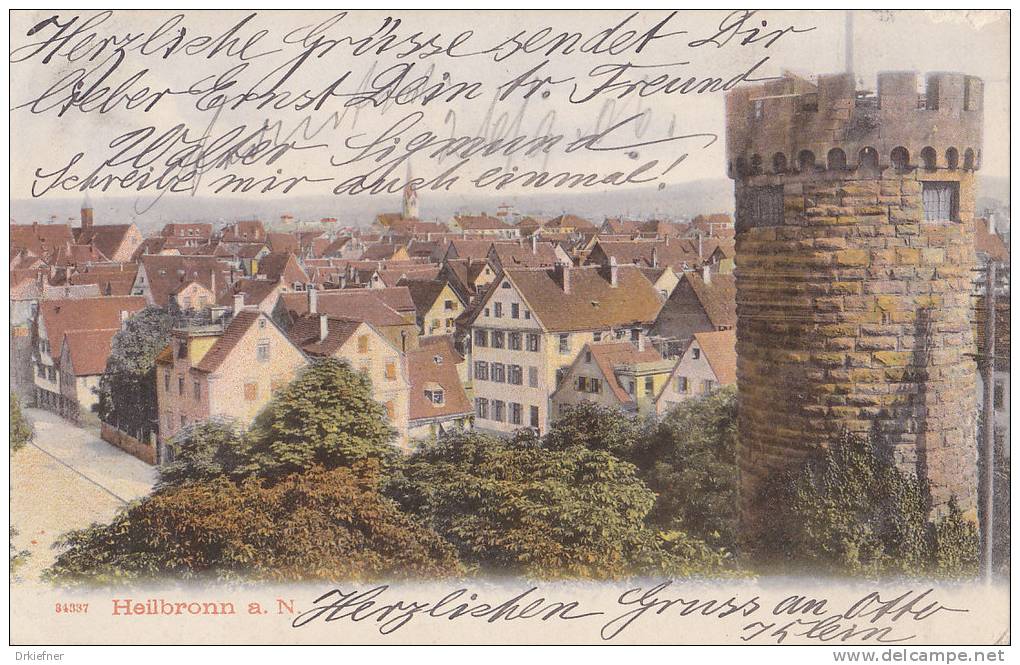 Herzliche Grüsse sendet Dir
lieber Ernst Dein tr. Freund
Walter Sigmund.
Schreibe mir auch einmal!
34337 Heilbronn a. N.
Herzlichen Gruss an Otto
Klein
Drkiefner
www.delcampe.net